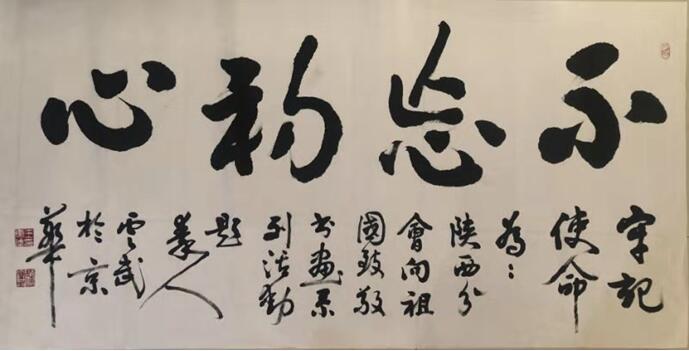 不忘初心
牢記
使命
為:
陝西分
會向祖
國致敬
书畫系
列活動
題
人
云武
於京
華